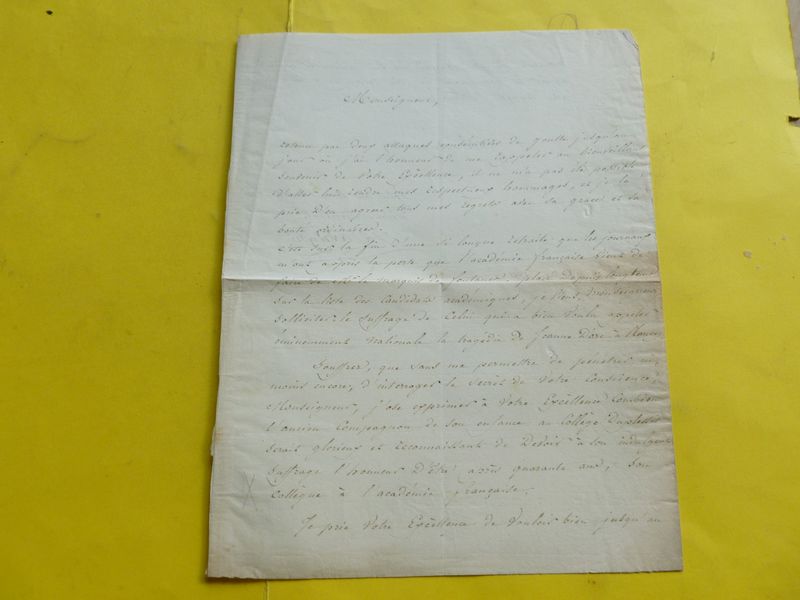 Monseigneur,
retenu par deux attaques consécutives de goutte jusqu'au
jour où j'ai l'honneur de me rappeler au bienveillant
souvenir de Votre Excellence, il ne m'a pas été possible
d'aller lui rendre mes respectueux hommages, et je la
prie d'en agréer tous mes regrets avec sa grace et sa
bonté ordinaires.
c'est sur la fin d'une si longue retraite que les journaux
m'ont appris la perte que l'académie française vient de
faire de M. le marquis de fontanes. placé depuis longtems
sur la liste des candidats académiques, je viens, Monseigneur
solliciter le suffrage de celui qui a bien voulu appeler
éminemment nationale la tragédie de Jeanne D'arc à Rouen
Souffrez, que sans me permettre de pénétrer ni,
moins encore, d'interroger le secret de votre conscience,
Monseigneur, j'ose exprimer à Votre Excellence combien
l'ancien compagnon de son enfance au Collège Duplessis
serait glorieux et reconnaissant de devoir à son indulgent
suffrage l'honneur d'être après quarante ans, son
collègue à l'académie française.
Je prie Votre Excellence de vouloir bien jusqu'au